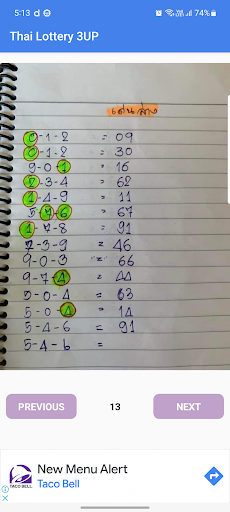 5:13
74%
Thai Lottery 3UP
เด่นล่าง
0-1-2 = 09
0-1-2 = 30
9-0-1 = 16
2-3-4 = 62
1-4-9 = 11
5-7-6 = 67
1-7-8 = 91
7-3-9 = 46
9-0-3 = 66
9-7-4 = 44
5-0-4 = 63
5-0-4 = 14
5-4-6 = 91
5-4-6 =
PREVIOUS 13 NEXT
New Menu Alert
Taco Bell
TACO BELL